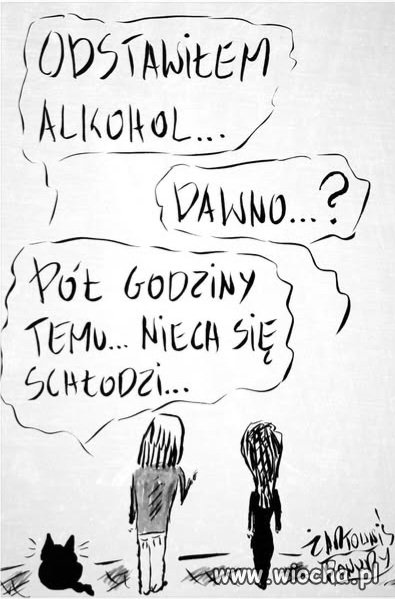 ODSTAWIŁEM
ALKOHOL...
DAWNO...?
PÓŁ GODZINY
TEMU... NIECH SIĘ
SCHŁODZI...
ŻARTOWNIŚ
PONURY
www.wiocha.pl